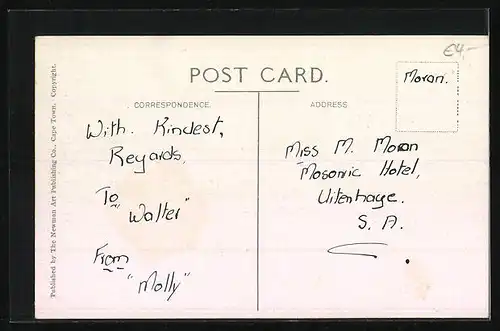 €4,-
POST CARD.
CORRESPONDENCE.
ADDRESS
Moran.
With. Kindest,
Regards,
To
"Walter"
From
"Molly"
Miss M. Moran
Masonic Hotel,
Uitenhage.
S. A.
Published by The Newman Art Publishing Co., Cape Town. Copyright.